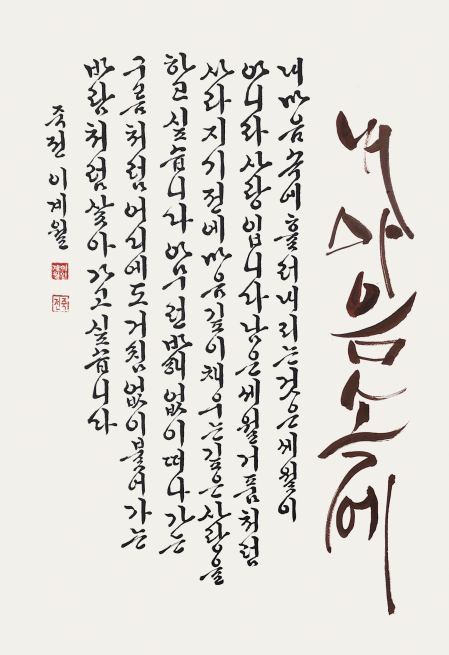 내 마음 속에
내 마음 속에 흘러내리는 것은 세월이
아니라 사랑입니다 남은 세월 거품처럼
사라지기 전에 마음 깊이 채우는 깊은 사랑을
하고 싶습니다 아무런 방해 없이 떠나가는
구름처럼 어디에도 거침없이 불어가는
바람처럼 살아가고 싶습니다
죽전 이계월